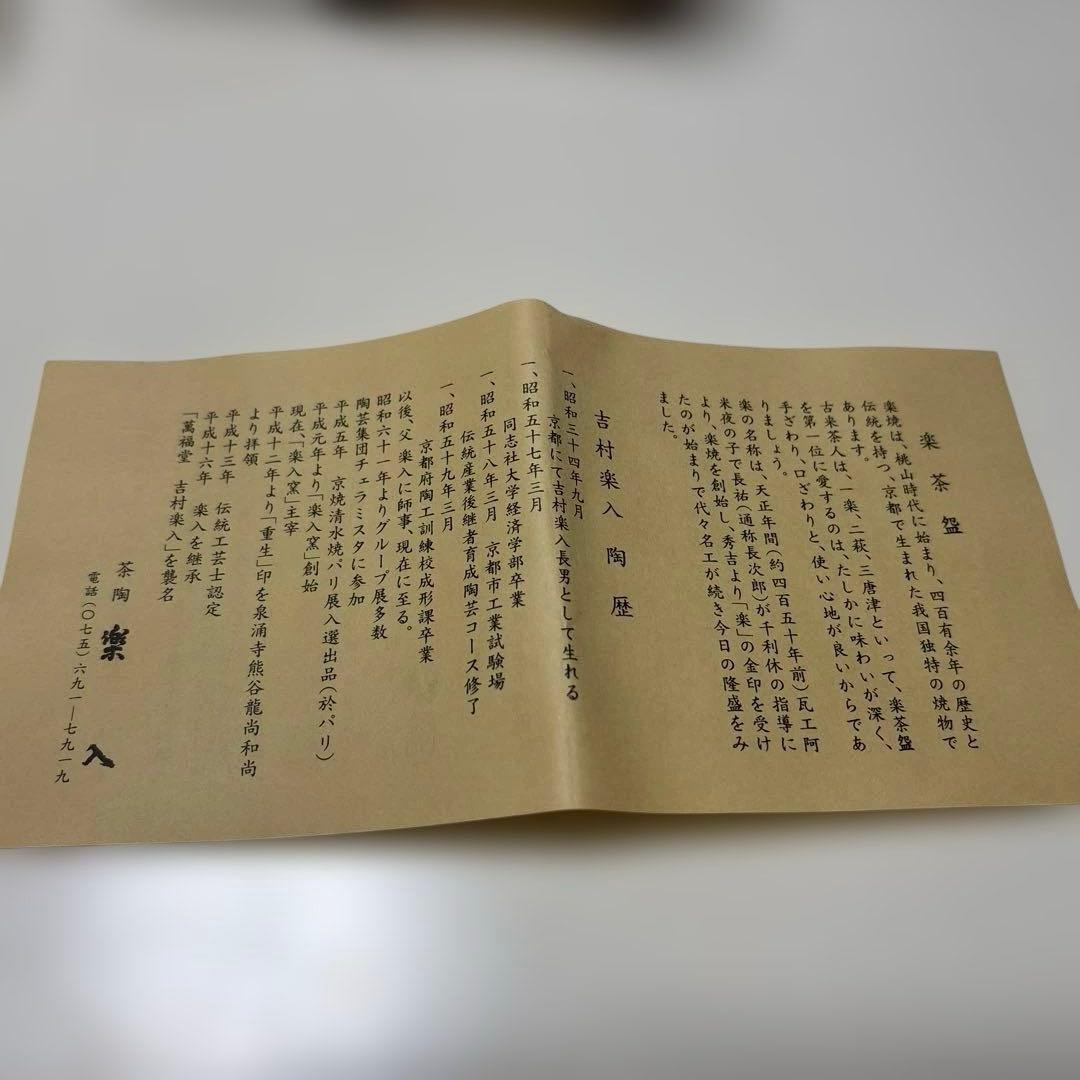 楽茶盌
楽焼は、桃山時代に始まり、四百有余年の歴史と
伝統を持つ、京都で生まれた我国独特の焼物で
あります。
古来茶人は、一楽、二萩、三唐津といって、楽茶盌
を第一位に愛するのは、たしかに味わいが深く、
手ざわり、口ざわりと、使い心地が良いからであ
りましょう。
楽の名称は、天正年間(約四百五十年前)瓦工阿
米夜の子で長祐(通称長次郎)が千利休の指導に
より、楽焼を創始し、秀吉より「楽」の金印を受け
たのが始まりで代々名工が続き今日の隆盛をみ
ました。
吉村楽入 陶歴
一、昭和三十四年九月
京都にて吉村楽入長男として生れる
一、昭和五十七年三月
同志社大学経済学部卒業
一、昭和五十八年三月 京都市工業試験場
伝統産業後継者育成陶芸コース修了
一、昭和五十九年三月
京都府陶工訓練校成形課卒業
以後、父 楽入に師事、現在に至る。
昭和六十一年よりグループ展多数
陶芸集団チェラミスタに参加
平成五年 京焼清水焼パリ展入選出品(於パリ)
平成元年より「楽入窯」創始
現在、「楽入窯」主宰
平成十二年より「重生」印を泉涌寺熊谷龍尚和尚
より拝領
平成十三年 伝統工芸士認定
平成十六年 楽入を継承
「萬福堂 吉村楽入」を襲名
茶陶 樂入
電話(〇七五)六九一―七九一九